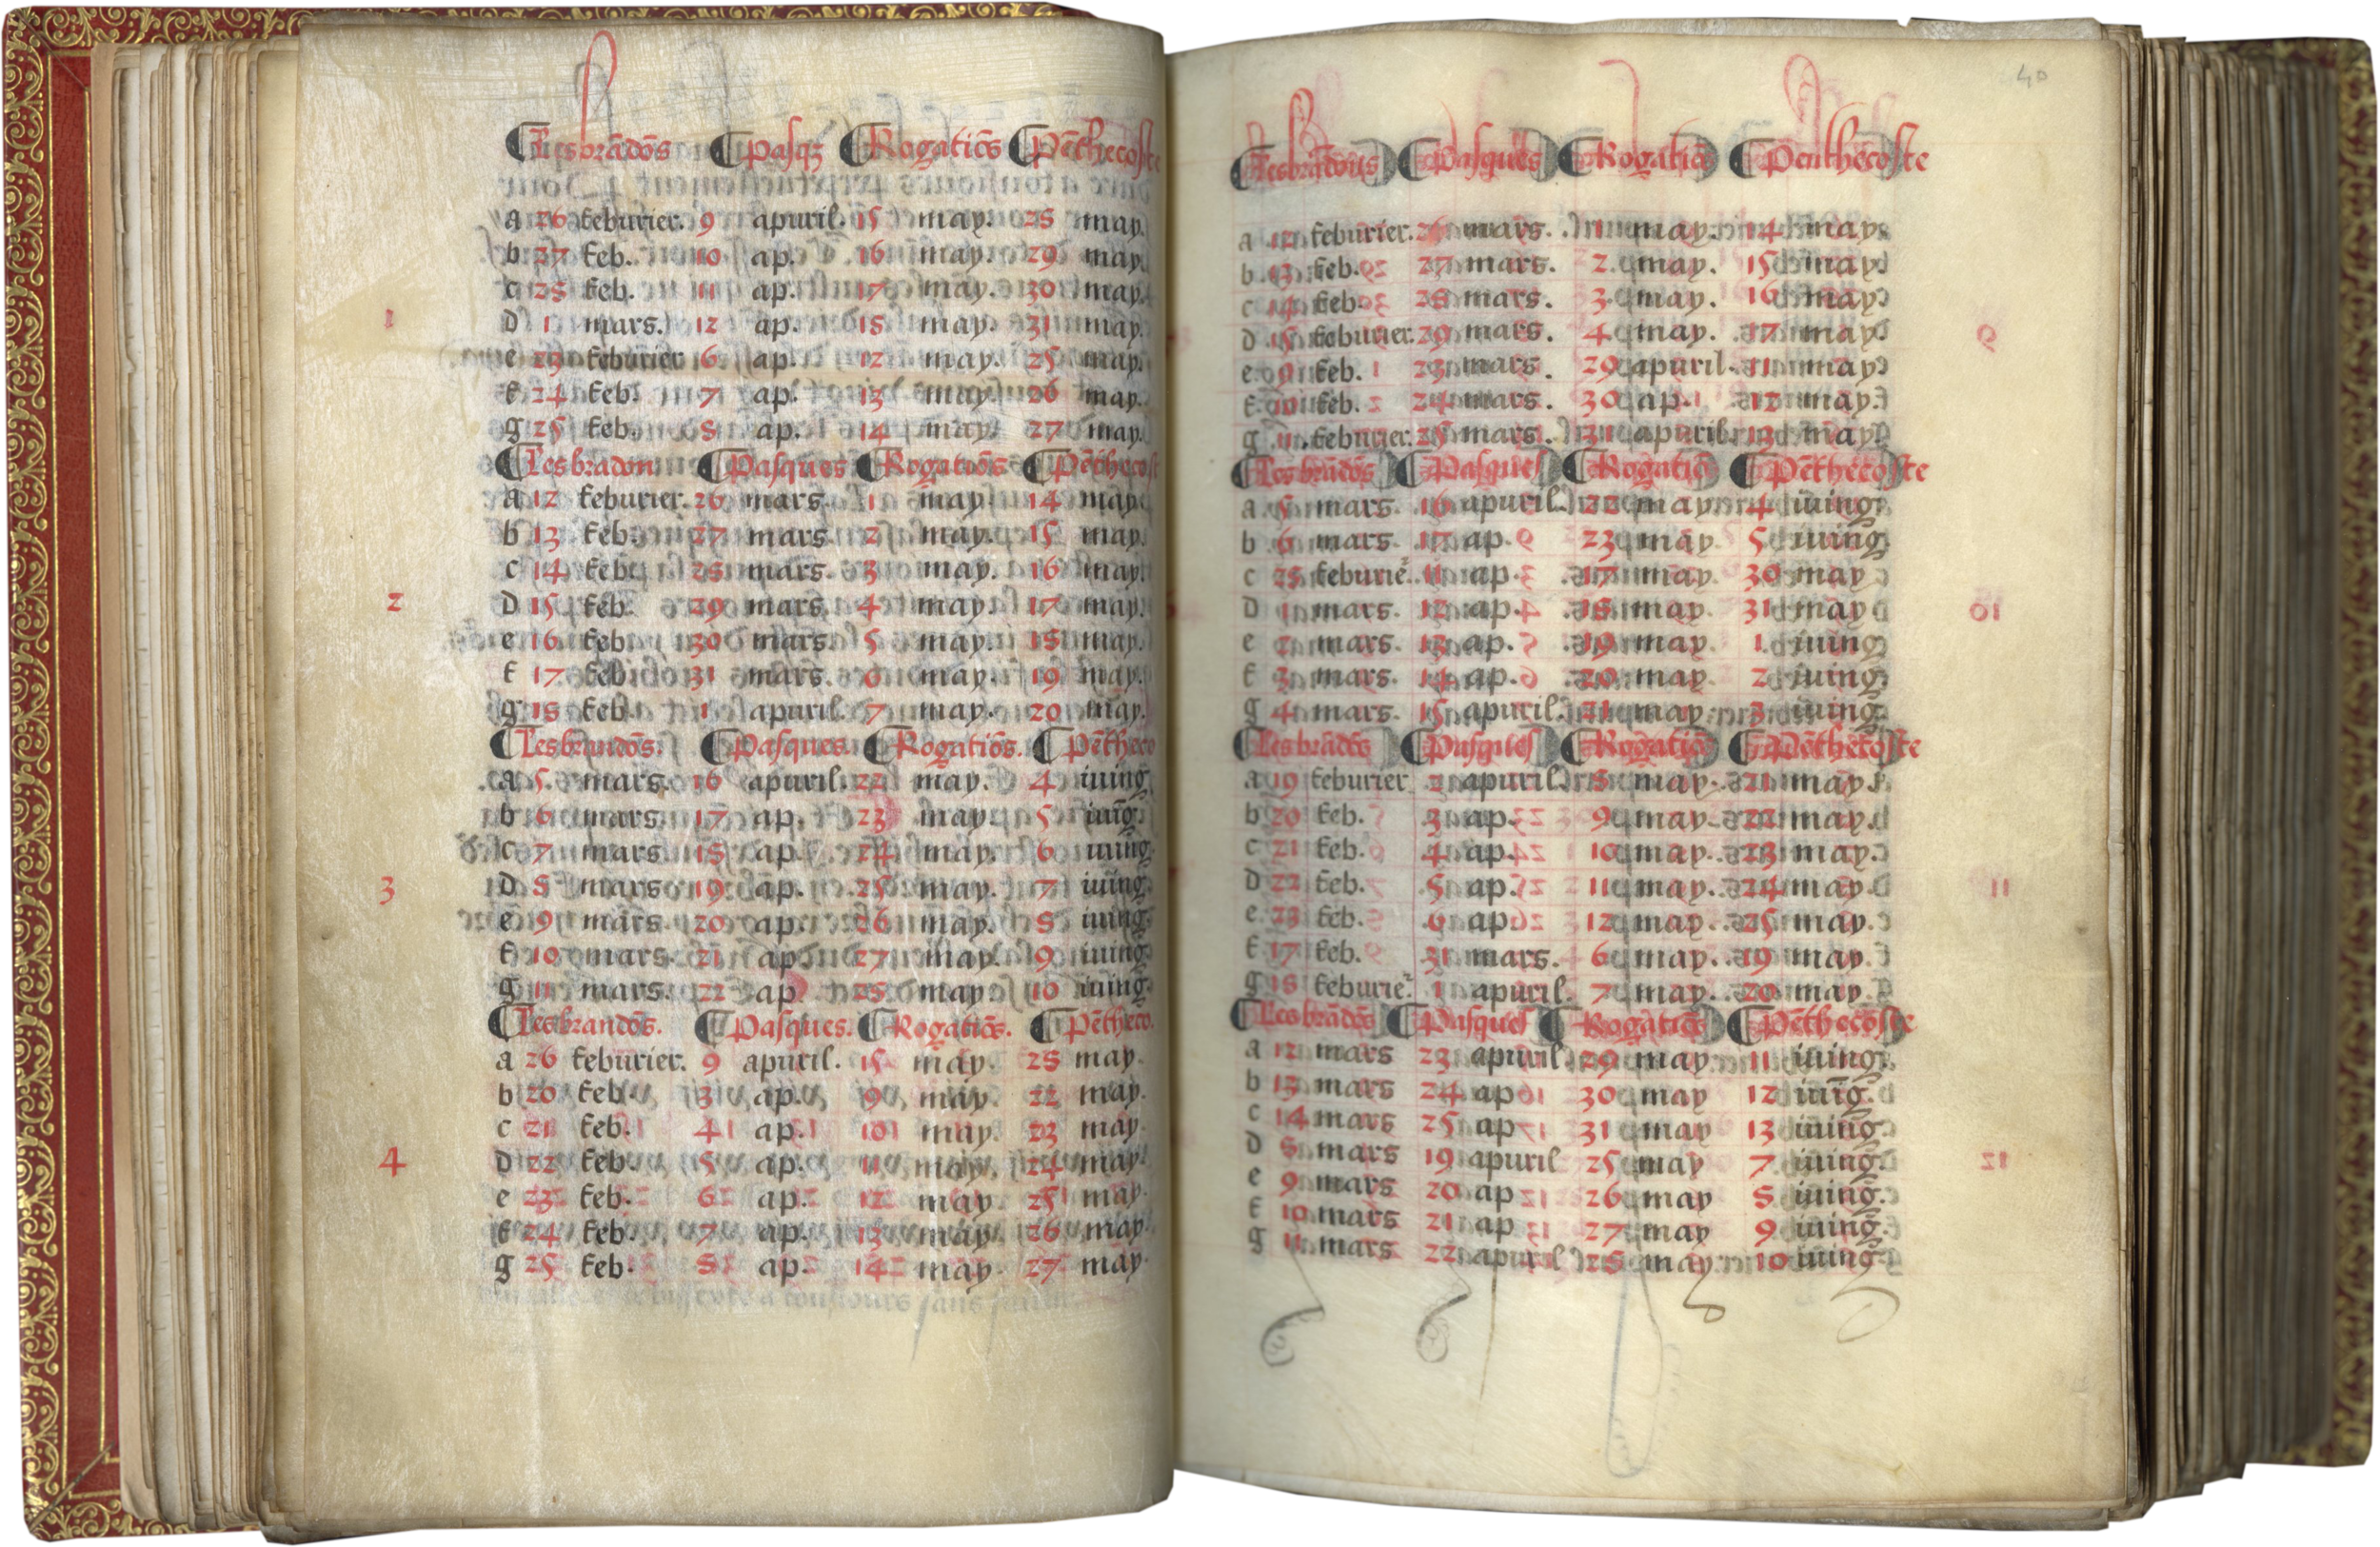 Les brādōs Pasqz Rogatiōs Pēthecoste
a 26 feburier. 9 apuril. 15 may. 28 may.
b 27 feb. 10 ap. 16 may. 29 may.
c 28 feb. 11 ap. 17 may. 30 may.
1 d 1 mars. 12 ap. 18 may. 31 may.
e 23 feburier 6 ap. 12 may. 25 may.
f 24 feb. 7 ap. 13 may. 26 may.
g 25 feb. 8 ap. 14 may. 27 may.
Les bradon Pasques Rogatiōs Pēthecost
a 12 feburier. 26 mars. 1 may. 14 may
b 13 feb. 27 mars. 2 may. 15 may.
c 14 feb. 28 mars. 3 may. 16 may.
2 d 15 feb. 29 mars. 4 may. 17 may.
e 16 feb. 30 mars. 5 may. 18 may.
f 17 feb. 31 mars. 6 may. 19 may.
g 18 feb. 1 apuril. 7 may. 20 may.
Les brandōs. Pasques. Rogatiōs. Pētheco
a 5 mars. 16 apuril. 22 may. 4 iuing
b 6 mars. 17 ap. 23 may. 5 iuīg.
c 7 mars 18 ap. 24 may. 6 iuing.
3 d 8 mars 19 ap. 25 may. 7 iuing.
e 9 mars. 20 ap. 26 may. 8 iuing.
f 10 mars. 21 ap. 27 may. 9 iuing.
g 11 mars. 22 ap. 28 may 10 iuing.
Les brandōs. Pasques. Rogatiōs. Pētheco.
a 26 feburier. 9 apuril. 15 may. 28 may.
b 20 feb. 3 ap. 9 may. 22 may.
c 21 feb. 4 ap. 10 may. 23 may.
4 d 22 feb. 5 ap. 11 may. 24 may.
e 23 feb. 6 ap. 12 may. 25 may.
f 24 feb. 7 ap. 13 may. 26 may.
g 25 feb. 8 ap. 14 may. 27 may.
40
Les brādōs Pasques Rogatiōs Penthecoste
a 12 feburier. 26 mars. 1 may. 14 may.
b 13 feb. 27 mars. 2 may. 15 may.
c 14 feb. 28 mars. 3 may. 16 may.
d 15 feburier. 29 mars. 4 may. 17 may.
e 9 feb. 23 mars. 29 apuril. 11 may.
f 10 feb. 24 mars. 30 ap. 12 may.
g 11 feburier. 25 mars. 31 apuril. 13 may.
Les brādōs Pasques Rogatiōs Pēthecoste
a 5 mars. 16 apuril. 22 may. 4 iuing.
b 6 mars. 17 ap. 23 may. 5 iuing.
c 28 feburie. 11 ap. 17 may. 30 may
d 1 mars. 12 ap. 18 may. 31 may
e 2 mars. 13 ap. 19 may. 1 iuing
f 3 mars. 14 ap. 20 may. 2 iuing.
g 4 mars. 15 apuril. 21 may. 3 iuing.
Les brādōs Pasques Rogatiōs Pēthecoste
a 19 feburier 2 apuril. 8 may. 21 may.
b 20 feb. 3 ap. 9 may. 22 may.
c 21 feb. 4 ap. 10 may. 23 may.
d 22 feb. 5 ap. 11 may. 24 may.
e 23 feb. 6 ap. 12 may. 25 may.
f 17 feb. 31 mars. 6 may. 19 may.
g 18 feburie. 1 apuril. 7 may. 20 may.
Les brādōs Pasques Rogatiōs Pēthecoste
a 12 mars 23 apuril 29 may. 11 iuing.
b 13 mars 24 ap 30 may 12 iuīg.
c 14 mars 25 ap 31 may 13 iuing.
d 8 mars 19 apuril 25 may 7 iuing.
e 9 mars 20 ap 26 may 8 iuing.
f 10 mars 21 ap 27 may 9 iuing.
g 11 mars 22 apuril 28 may 10 iuing.